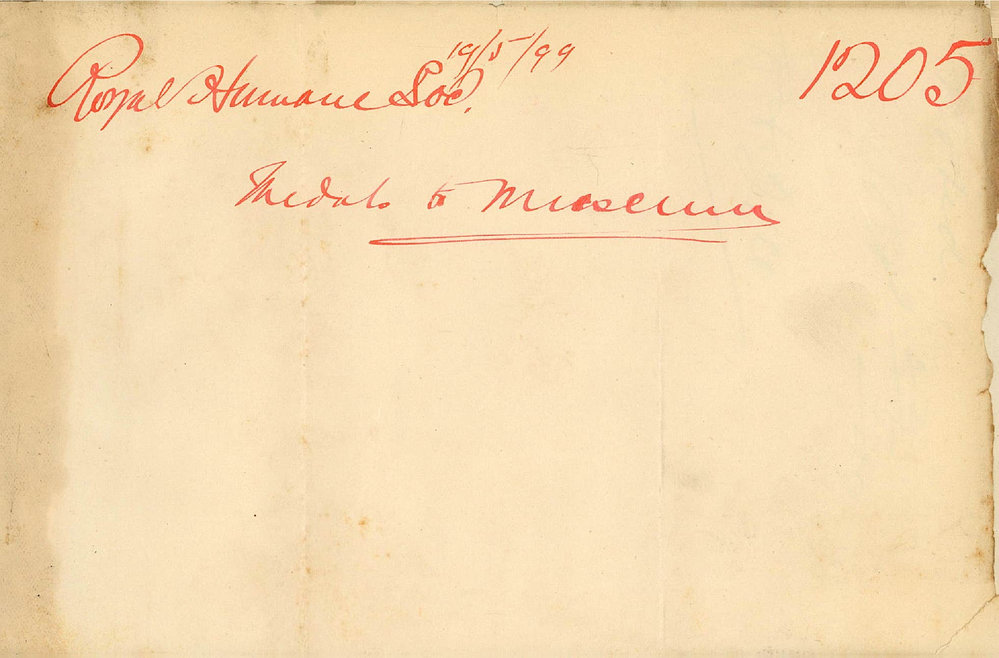 Royal Humane Soc. 19/5/99
1205
Medals to Museum